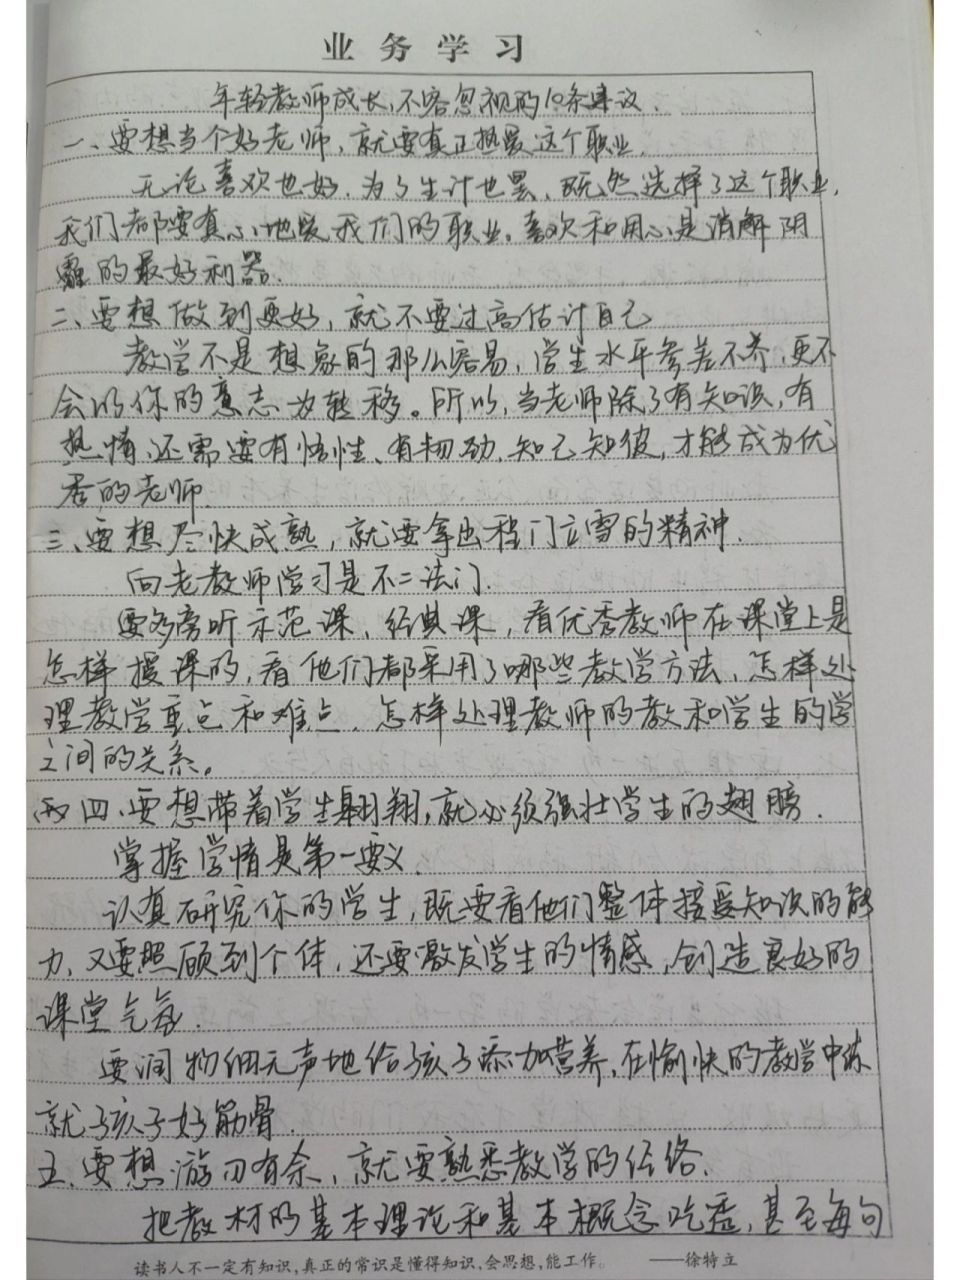 业务学习
年轻教师成长，不容忽视的10条建议．
一、要想当个好老师，就要真正热爱这个职业．
无论喜欢也好．为了生计也罢、既然选择了这个职业，
我们都要真心地爱我们的职业。喜欢和用心是消解阴
霾的最好利器．
二、要想做到更好，就不要过高估计自己
教学不是想象的那么容易，学生水平参差不齐，更不
会以你的意志为转移。所以，当老师除了有知识，有
热情，还需要有悟性、有韧劲．知己知彼，才能成为优
秀的老师．
三、要想尽快成熟，就要拿出程门立雪的精神．
向老教师学习是不二法门．
要多旁听示范课、经典课，看优秀教师在课堂上是
怎样授课的，看他们都采用了哪些教学方法、怎样处
理教学重点和难点．怎样处理教师的教和学生的学
之间的关系。
四、要想带着学生翱翔，就必须强壮学生的翅膀．
掌握学情是第一要义．
认真研究你的学生，既要看他们整体接受知识的能
力，又要照顾到个体，还要激发学生的情感，创造良好的
课堂气氛．
要润物细无声地给孩子添加营养，在愉快的教学中炼
就孩子好筋骨．
五、要想游刃有余，就要熟悉教学的经络．
把教材的基本理论和基本概念吃透，甚至每句
读书人不一定有知识，真正的常识是懂得知识，会思想，能工作。 ——徐特立